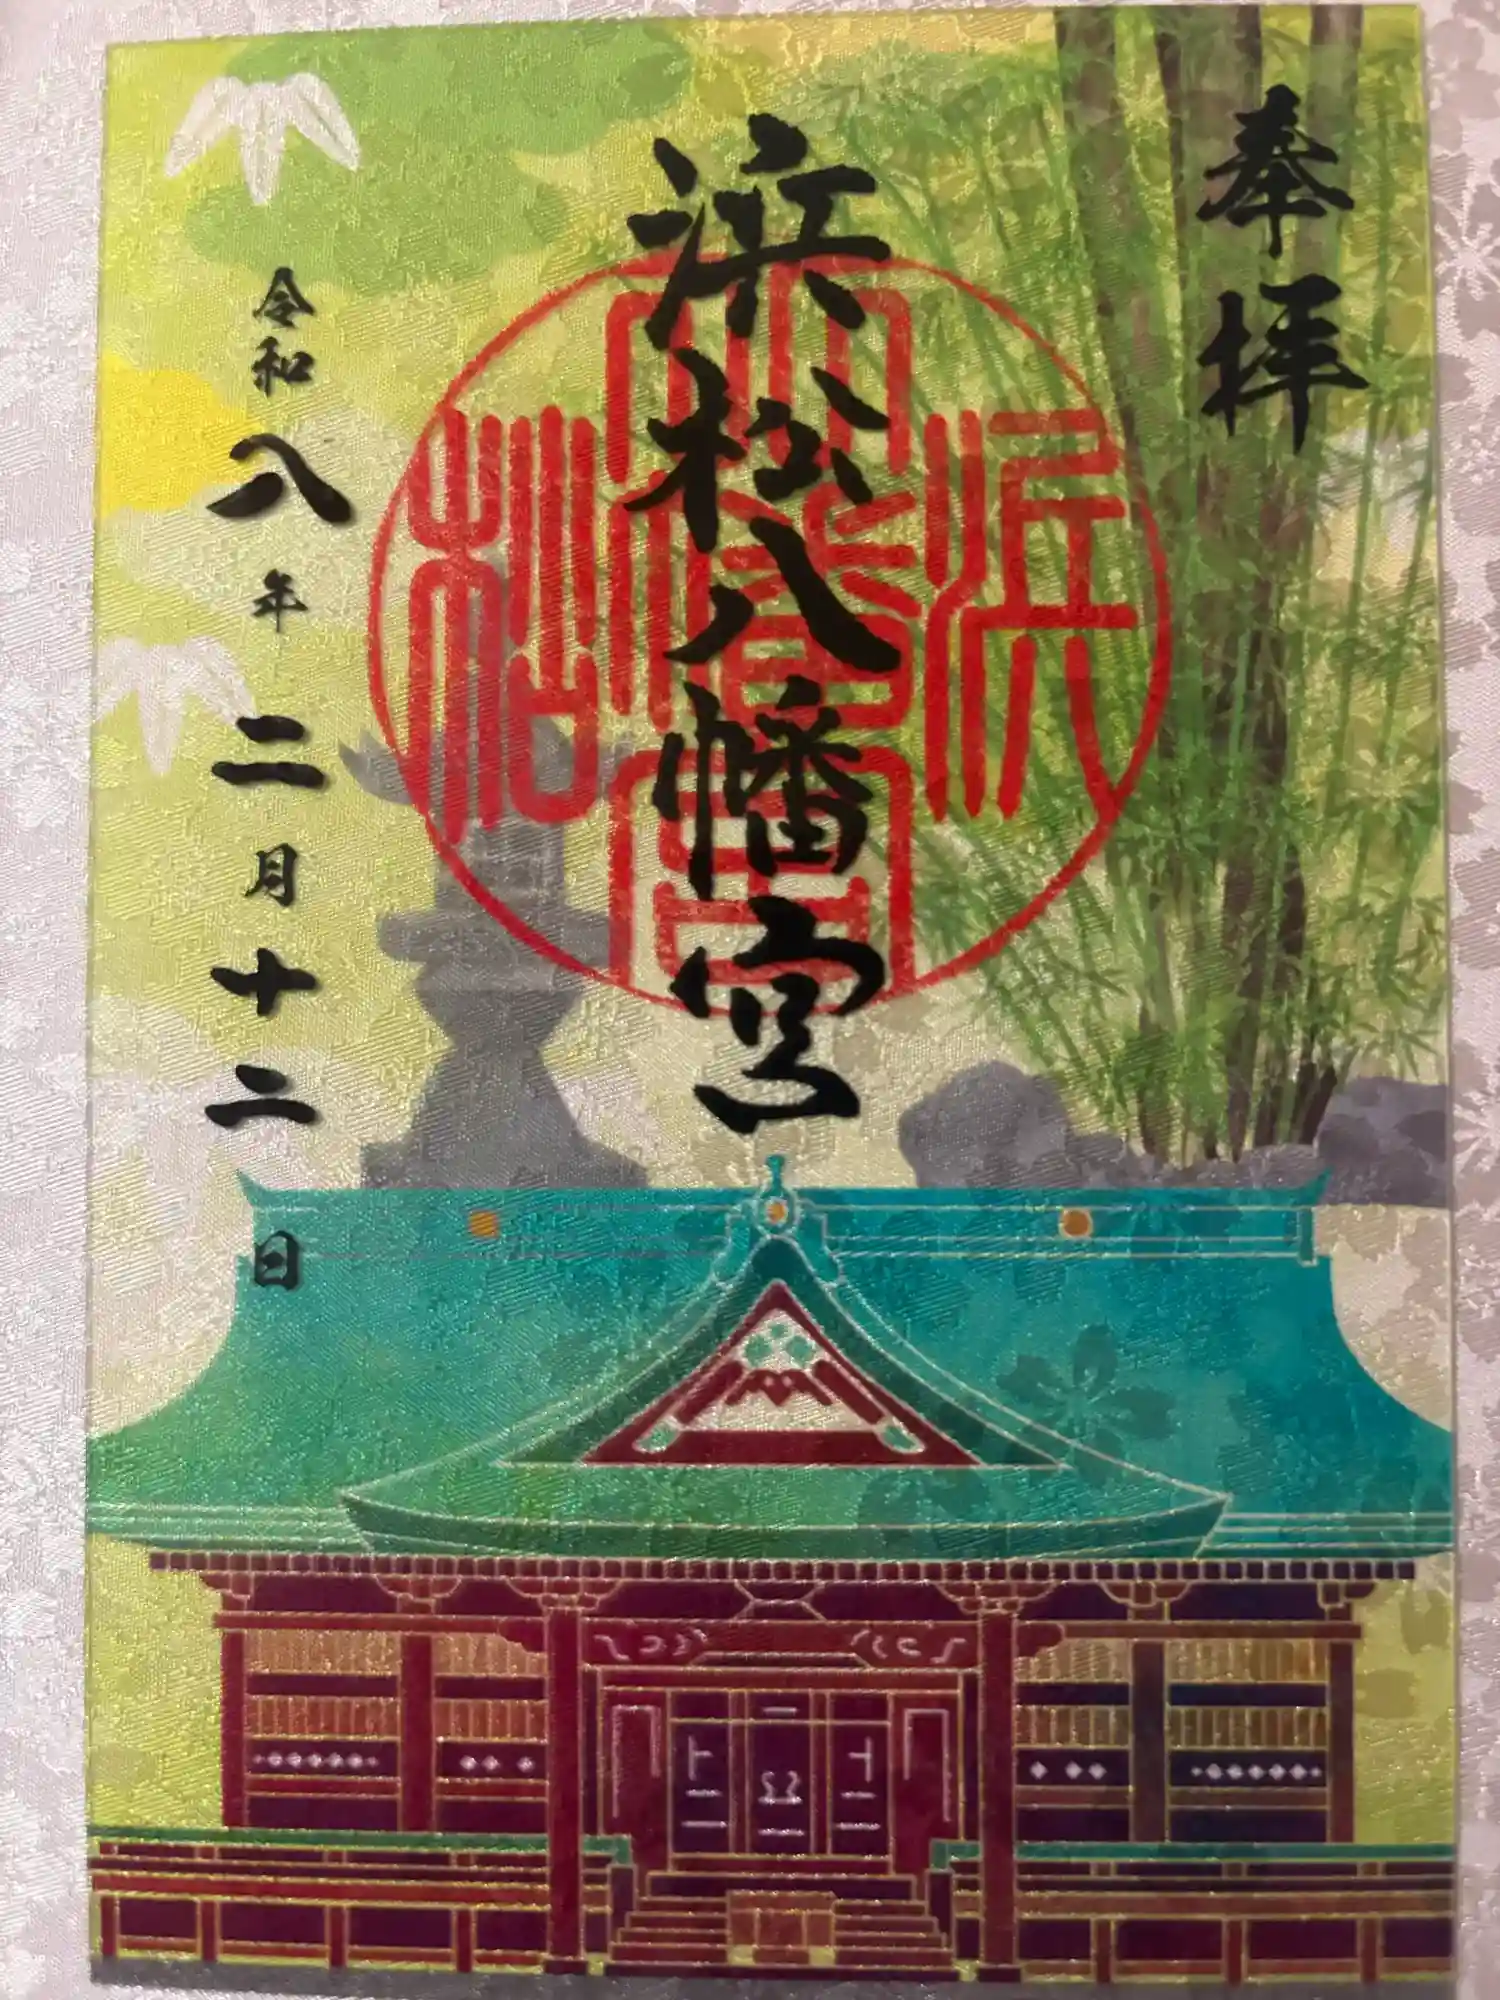 奉拝
浜松八幡宮
浜松八幡宮
令和八年二月十二日